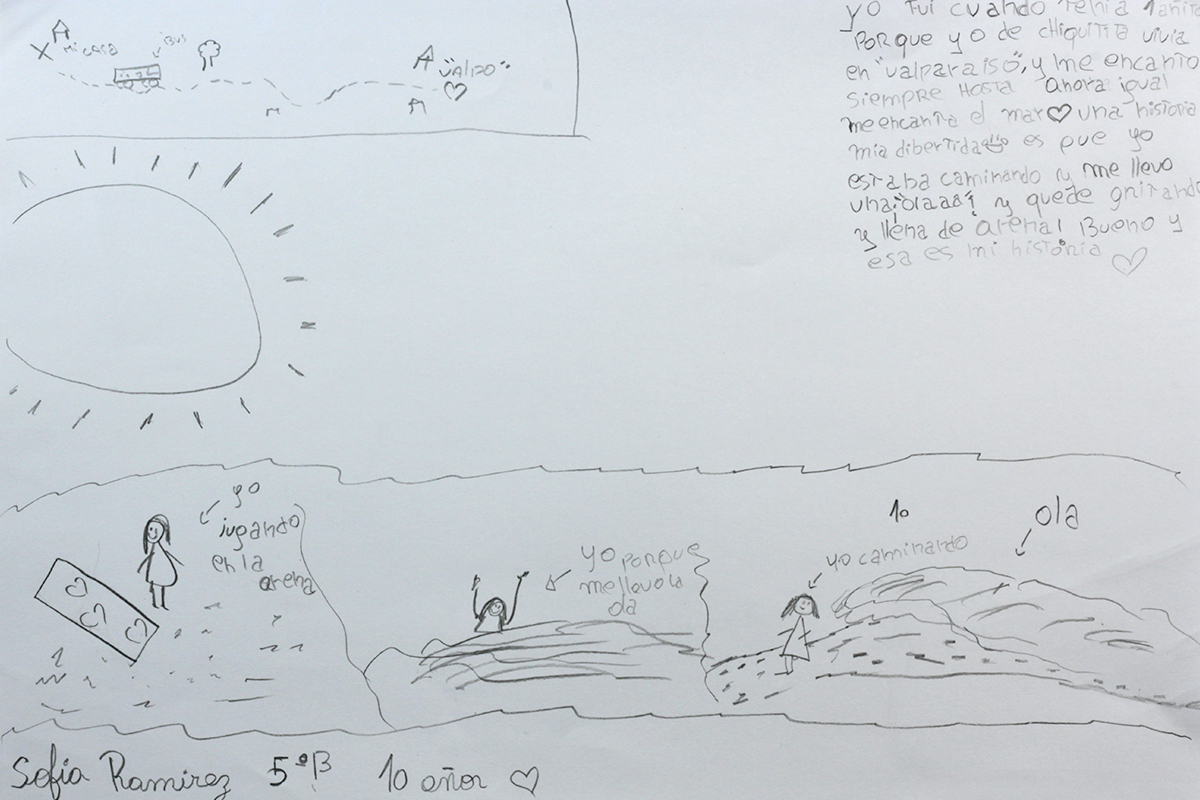 yo fui cuando tenia 1 añito
porque yo de chiquitita vivia
en "valparaiso", y me encanto
siempre hasta ahora igual
me encanta el mar una historia
mia dibertida es que yo
estaba caminando y me llevo
una ¡olaaa! y quede gritando
y llena de arena! Bueno y
esa es mi historia
mi casa
BUS
"VALPO"
yo
jugando
en la
arena
yo porque
me llevo la
ola
yo caminando
ola
Sofia Ramirez 5°B 10 años